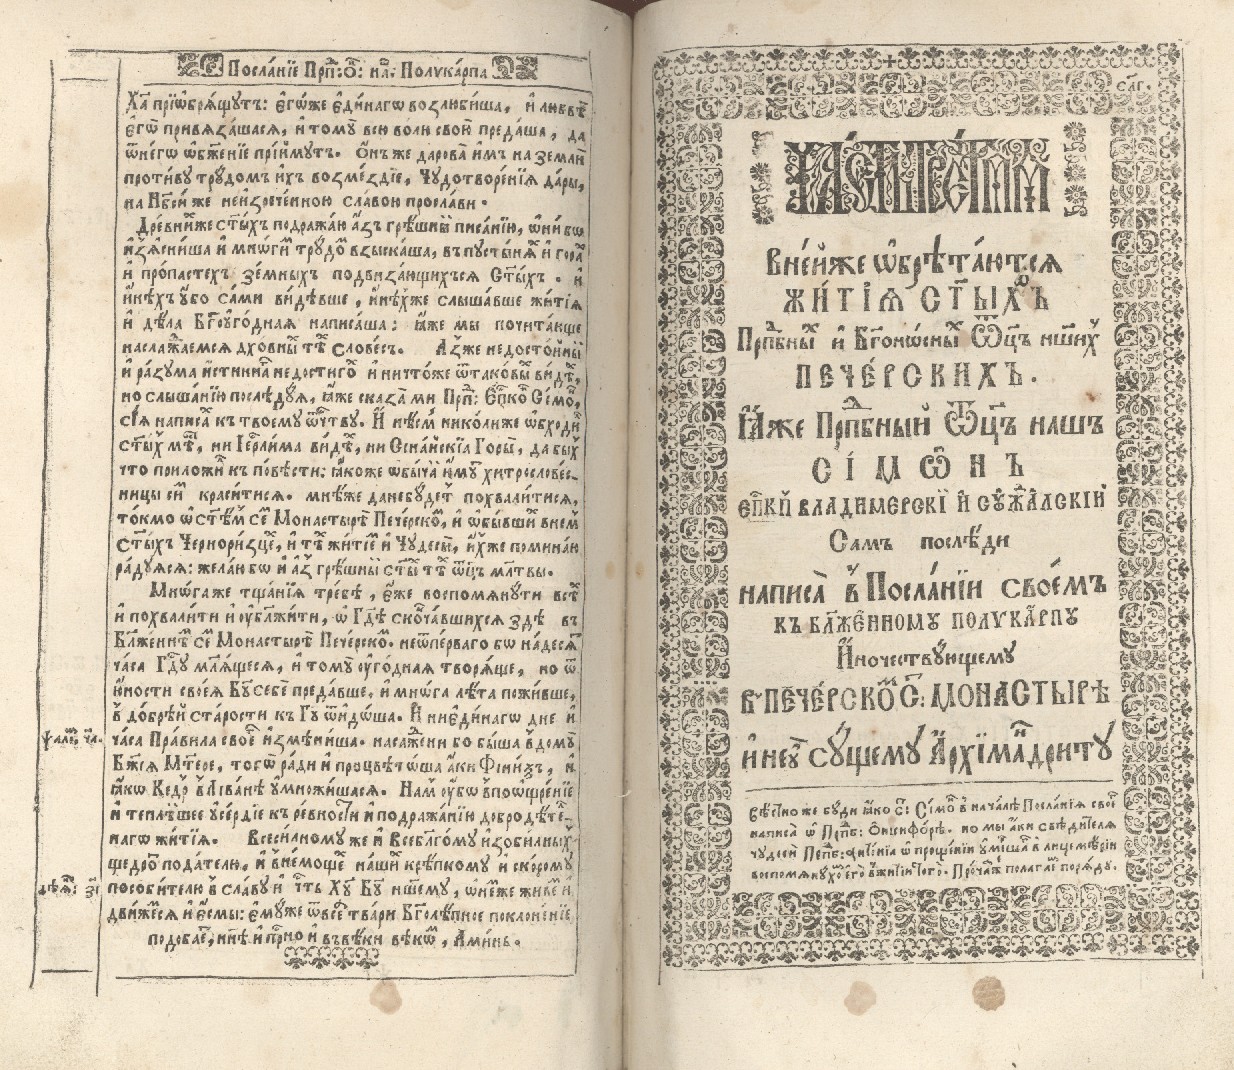 Посла́нїе Прпⷣ: Ѻ҃: на́: Полука́рпа
Хⷭ҇а прїѡбрѧ́щутъ: є҆го́же є҆ди́нагѡ возлюби́ша, и҆ любвѣ
є҆гѡ̀ привѧза́шасѧ, и҆ тому̀ всю во́лю свою̀ преда́ша, да
ѿ негѡ̀ ѡ҆бж҃е́нїе прїи́мутъ. Ѻ҆́нъ же дарова̀ и҆́мъ на землѝ
проти́ву трудо́мъ и҆́хъ возме́здїе, Чудотворе́нїѧ да́ры,
на Нб҃сѝ же неи҆зрече́нною сла́вою просла́ви.
Дре́внїйже ст҃ы́хъ подража́ю а҆́зъ грѣ́шный писа́нїю, ѻ҆ни́ бо
и҆з̾ѧсни́ша и҆ мно́гимъ трудо́мъ взыска́ша, въ пусты́нѧхъ и҆ гора́хъ
и҆ про́пастехъ зе́мныхъ подвиза́ющихъсѧ Ст҃ы́хъ. и҆
и҆́нѣхъ у҆́бо са́ми ви́дѣвше, и҆́нѣхже слы́шавше житїѧ̀
и҆ дѣ́ла Бг҃оуго́днаѧ написа́ша: ꙗ҆́же мы̀ почита́юще
наслажда́емсѧ дх҃о́вныхъ тѣ́хъ слове́съ. А҆́зже недосто́йный
и҆ ра́зума и҆́стиннаго недости́гъ и҆ ничто́же ѿ таковы́хъ ви́дѣхъ,
но слы́шанїю послѣ́дуѧ, ꙗ҆́же сказа̀ ми Прпⷣ: Є҆пⷭ҇копъ Сѷмѡ́нъ,
сїѧ̑ написа́хъ къ твоему̀ ѻ҆́ч҃тву. И҆ нѣ́смь николи́же ѡ҆бходи́лъ
ст҃ы́хъ мѣ́стъ, ни І҆ер҃ли́ма ви́дѣхъ, ни Сїна́йскїѧ Горы̀, да бы́хъ
что̀ приложи́лъ къ по́вѣсти: ꙗ҆́коже ѡ҆бы́чай и҆́мутъ хитрослове́с-
ницы си́мъ краси́тисѧ. мнѣ́же да не бу́детъ похвали́тисѧ,
то́кмо ѡ҆ ст҃ѣ́мъ се́мъ Монастырѣ̀ Пече́рскомъ, и҆ ѡ҆ бы́вшихъ в не́мъ
ст҃ы́хъ Чернори́зцехъ, и҆ тѣ́хъ житїи и҆ Чудесѣ́хъ, и҆́хже помина́ю
ра́дуѧсѧ: жела́ю бо и҆ а҆́зъ грѣ́шный ст҃ы́хъ тѣ́хъ ѻ҆ц҃ъ мл҃твы.
Мно́гаже тща́нїѧ тре́бѣ, є҆́же воспомѧну́ти всѣ́хъ
и҆ похвали́ти и҆ ублажи́ти, ѡ҆ Гдⷭ҇ѣ сконча́вшихсѧ здѣ̀ въ
Блаже́ннѣмъ се́мъ Монастырѣ̀ Пече́рскомъ. не ѿ пе́рваго бо на де́сѧть
часа̀ Гдⷭ҇у мл҃ѧ́щесѧ, и҆ тому̀ ѹ҆го́днаѧ творѧ́ще, но ѿ
ю҆́ности своеѧ̀ Бг҃у себѐ преда́вше, и҆ мнѡ́га лѣ́та пожи́вше,
в̾ до́брѣй ста́рости къ Гдⷭ҇у ѿидо́ша. И҆ ни є҆ди́нагѡ днѐ и҆
часа̀ Пра́вила своегѡ̀ и҆змѣни́ша. насажде́ни бо бы́ша в̾ дому̀
Бж҃їѧ Мт҃ре, тогѡ̀ ра́ди и҆ процвѣто́ша а҆́ки Фі́нїѯъ, и҆
ꙗ҆́кѡ Ке́дръ в̾ Лїва́нѣ у҆мно́жишасѧ. На́мъ ѹ҆́бѡ в̾ поѡщре́нїе
и҆ теплѣ́йшее у҆се́рдїе къ ре́вности и҆ подража́нїю добродѣ́те-
нагѡ житїѧ̀. Всеси́лному же и҆ Всебл҃го́му и҆зоби́лныхъ
ще́дротъ пода́телю, и҆ в̾ не́мощехъ на́шихъ крѣ́пкому и҆ ско́рому
посо́бителю в̾ сла́ву и҆ че́сть Хⷭ҇у Бг҃у на́шему, ѡ҆ не́мже живе́мъ и҆
дви́жемсѧ и҆ є҆смы̀: є҆му́же ѿ все́ѧ тва́ри Бг҃олѣ́пное поклоне́нїе
подоба́етъ, нн҃ѣ и҆ прⷭ҇но и҆ въ вѣ́ки вѣкѡ́въ, А҆ми́нь.
сл҃г.
ЧА́СТЬ ТРЕ́ТЇАѦ
В не́йже ѡ҆брѣта́ютсѧ
ЖИ́ТІѦ СТ҃Ы́ХЪ
Прпⷣбныхъ и҆ Бг҃оно́сныхъ Ѻ҆ц҃ъ нш҃ихъ
ПЕЧЕ́РСКИХЪ.
Ꙗ҆́же Прпⷣбный Ѻ҆ц҃ъ нашъ
СІ́МѠНЪ
Є҆пⷭ҇кпъ ВЛАДИМЕРСКІЙ И҆ СУ́ЖДАЛСКІЙ
Самъ послѣди
написа̀ в̾ Посла́нїи свое́мъ
къ блаже́нному полука́рпу
И҆́ночествующему
в̾ пече́рскомъ С: монастырѣ
и҆ не у҆̀ су́щему А҆рхїма́ндриту
Вѣ́стноже бу́ди ꙗ҆́ко С: Сі́мѡнъ в̾ нача́лѣ Посла́нїѧ своегѡ̀
написа̀ ѡ҆ Прпⷣб: Ѻ҆ниси́форѣ. но мы̀ а҆́ки свѣдѣ́телѧ
чудесѐ
воспомѧну́хом его̀ в̾ житїѝ того̀. Про́чаѧже полага́емъ по рѧ́ду.